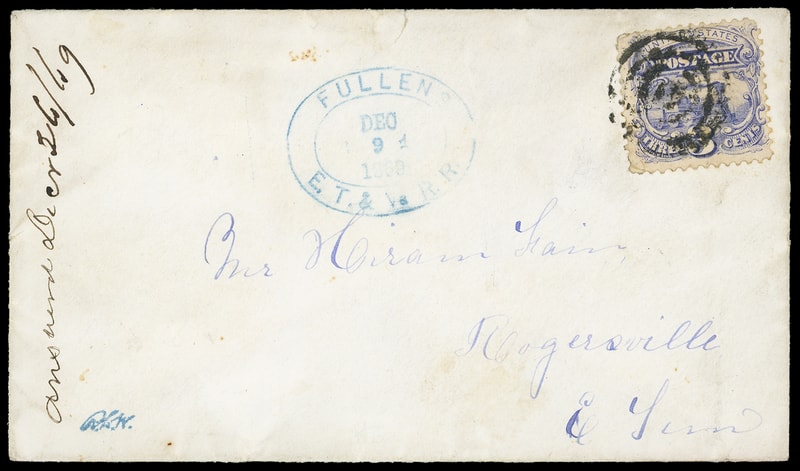 FULLENS
DEC
1869
E. T. & Va R. R.
UNITED STATES
POSTAGE
THREE 3 CENTS
Mr Hiram Fain
Rogersville
E Tenn
Answerd Decr 26/69